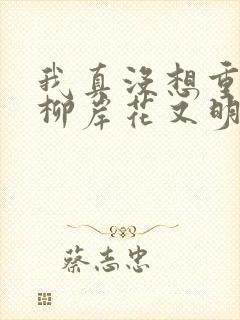 我真没想重
柳岸花又明
蔡志忠